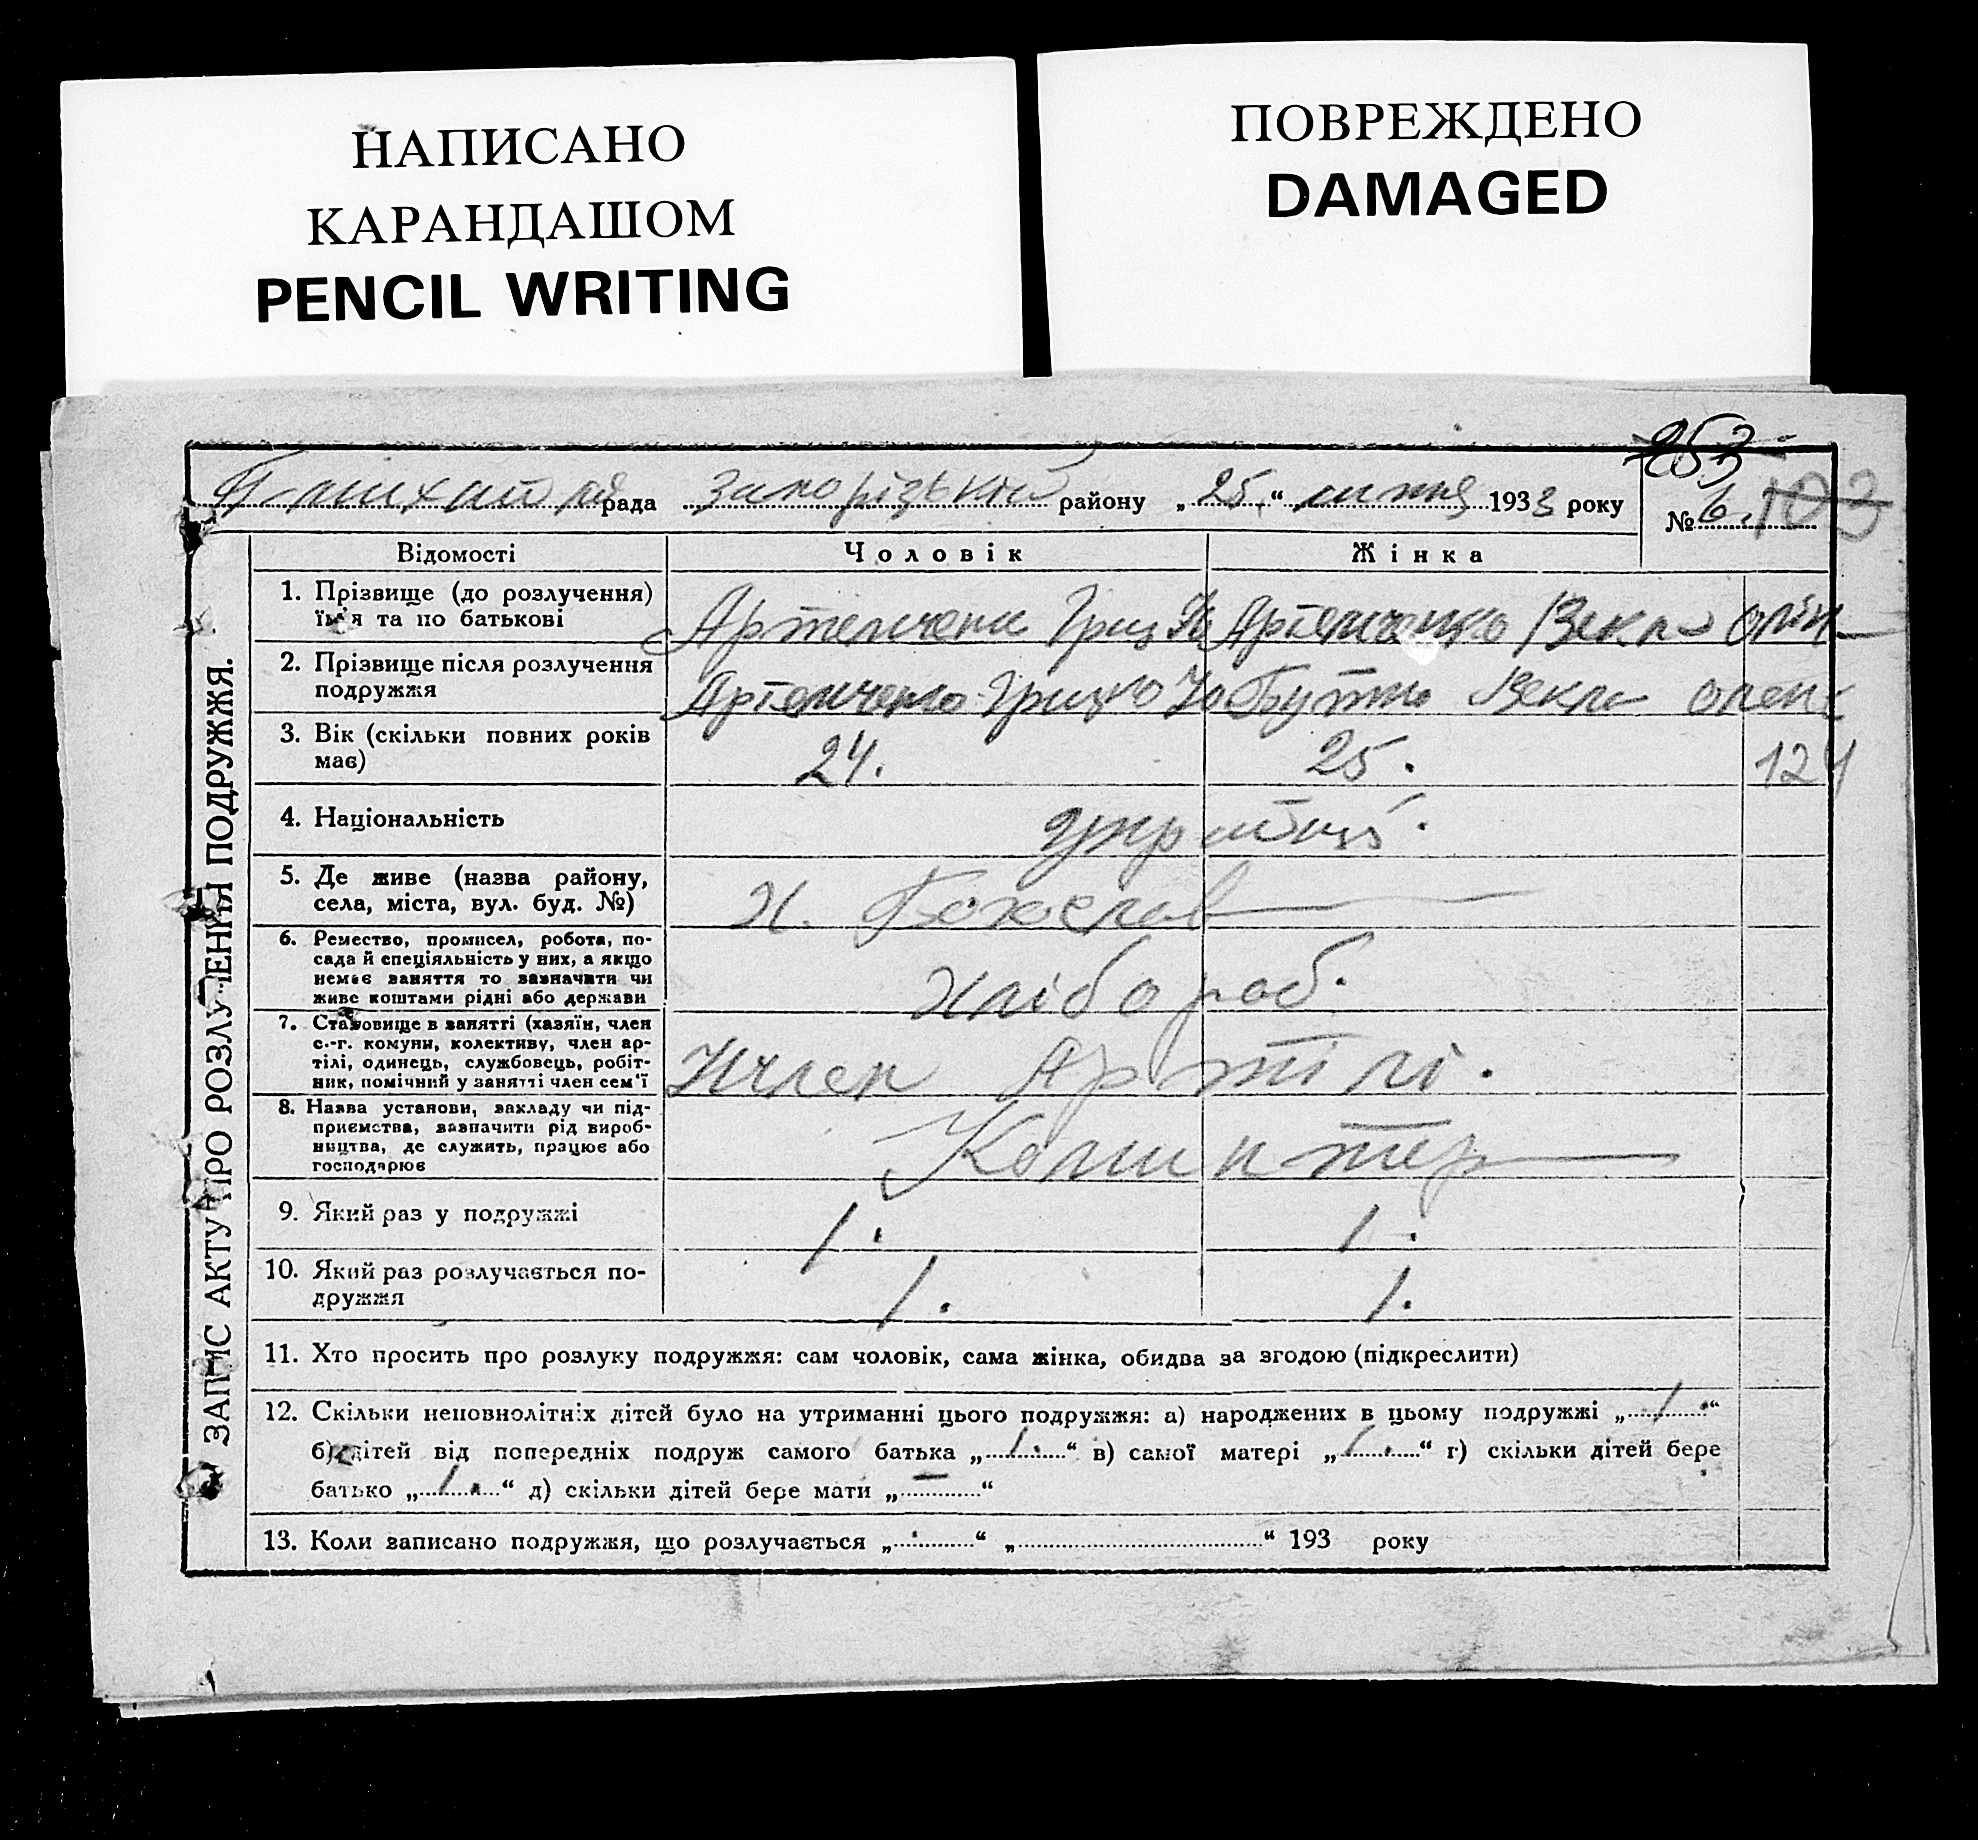 НАПИСАНО
КАРАНДАШОМ
PENCIL WRITING
ПОВРЕЖДЕНО
DAMAGED
253
рада Запорізький району „25.“ липня 1933 року
№ 6. 103
Відомості Чоловік Жінка
1. Прізвище (до розлучення)
ім'я та по батькові
Артемченко Гриц Артемченко Векла
2. Прізвище після розлучення
подружжя
Артемченко Грицко Бутко Векла
3. Вік (скільки повних років
має)
24. 25. 124
4. Національність
україці.
5. Де живе (назва району,
села, міста, вул. буд. №)
х.
6. Ремество, промисел, робота, по-
сада й спеціяльність у них, а якщо
немає заняття то зазначити чи
живе коштами рідні або держави
хлібороб.
7. Становище в занятті (хазяїн, член
с.-г. комуни, колективу, член ар-
тілі, одинець, службовець, робіт-
ник, помічний у занятті член сем'ї
Член Артілі.
8. Назва установи, закладу чи під-
приємства, зазначити рід вироб-
ництва, де служить, працює або
господарює
Коминтер
9. Який раз у подружжі
1. 1.
10. Який раз розлучається по-
дружжя
1. 1.
11. Хто просить про розлуку подружжя: сам чоловік, сама жінка, обидва за згодою (підкреслити)
12. Скільки неповнолітніх дітей було на утриманні цього подружжя: а) народжених в цьому подружжі „1“
б) дітей від попередніх подруж самого батька „1.“ в) самої матері „1.“ г) скільки дітей бере
батько „1.“ д) скільки дітей бере мати „—“
13. Коли записано подружжя, що розлучається „“ „“ 193 року
ЗАПИС АКТУ ПРО РОЗЛУЧЕННЯ ПОДРУЖЖЯ.